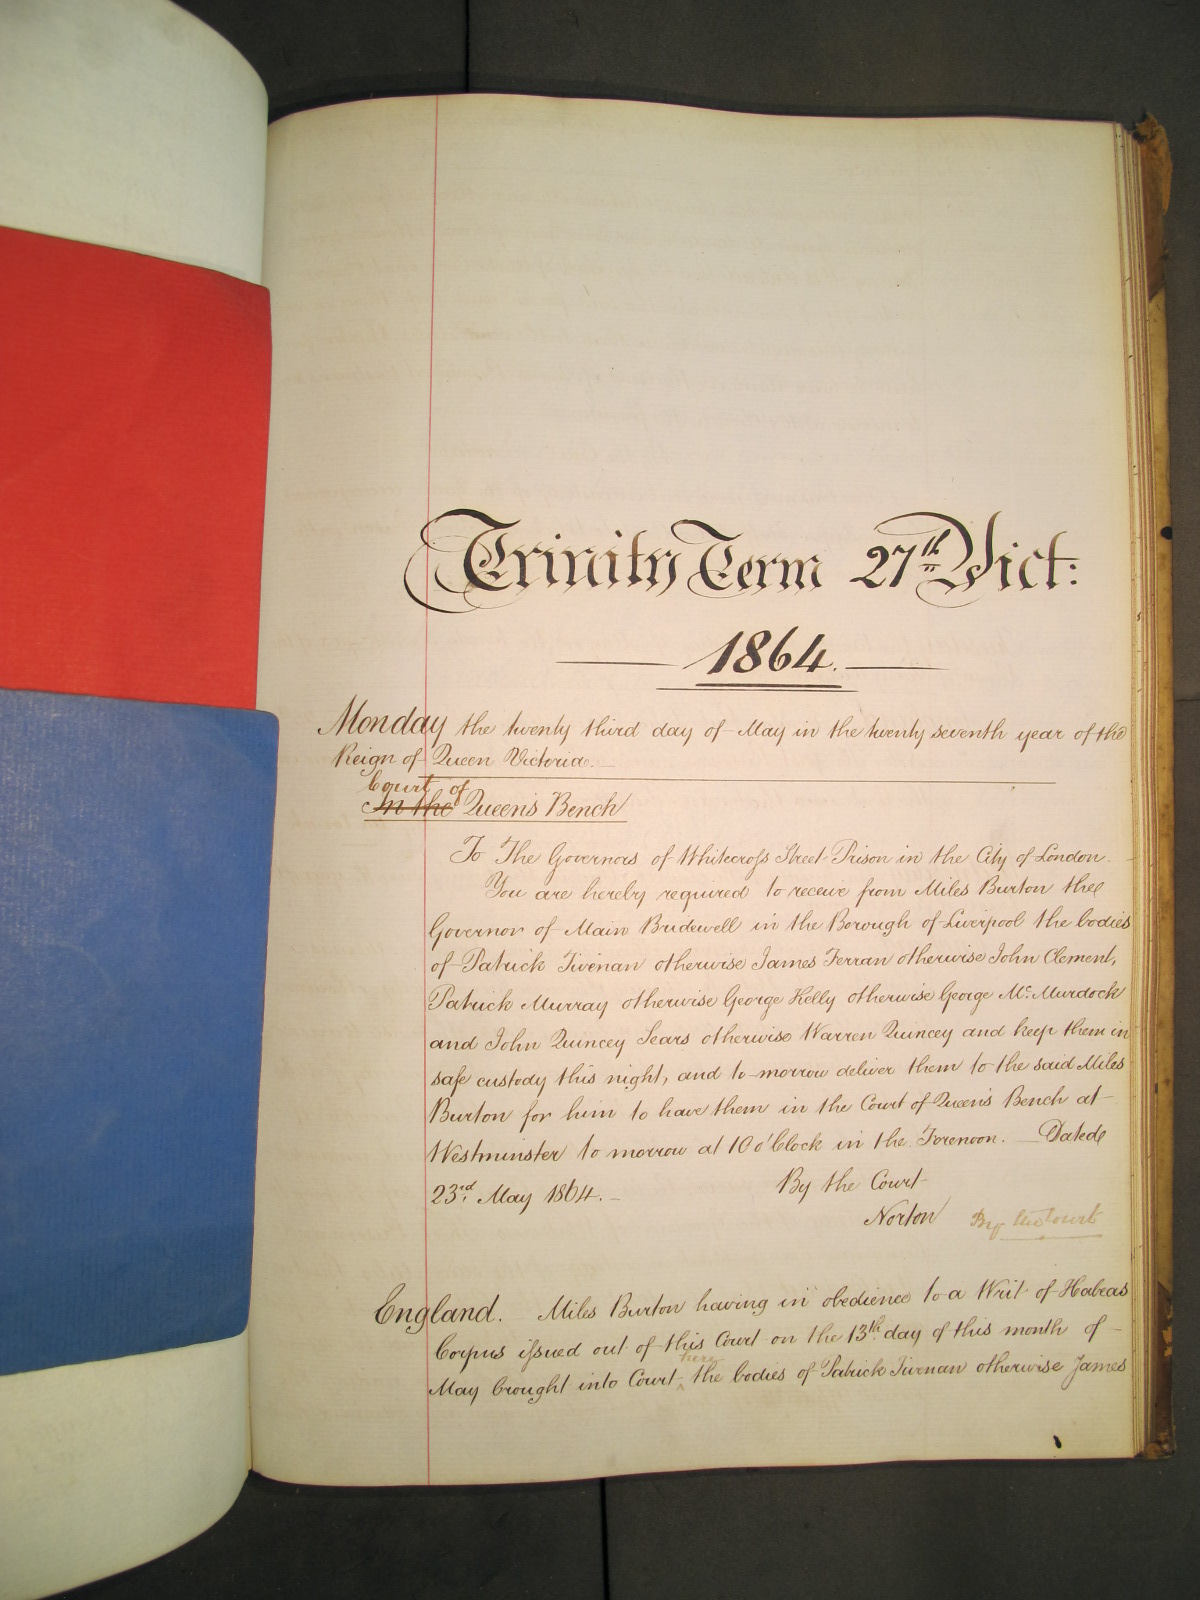 Trinity Term 27th Vict:
1864.
Monday the twenty third day of May in the twenty seventh year of the
Reign of Queen Victoria.
Court of
In the Queen's Bench
To The Governors of Whitecross Street Prison in the City of London.
You are hereby required to receive from Miles Burton the
Governor of Main Bridewell in the Borough of Liverpool the bodies
of Patrick Tivenan otherwise James Ferran otherwise John Clement,
Patrick Murray otherwise George Kelly otherwise George Mc.Murdock
and John Quincey Sears otherwise Warren Quincey and keep them in
safe custody this night, and to-morrow deliver them to the said Miles
Burton for him to have them in the Court of Queen's Bench at
Westminster to morrow at 10 o'Clock in the Forenoon. Dated
23rd May 1864.
By the Court
Norton By the Court
England. Miles Burton having in obedience to a Writ of Habeas
Corpus issued out of this Court on the 13th day of this month of
here
May brought into Court ^ the bodies of Patrick Tivenan otherwise James